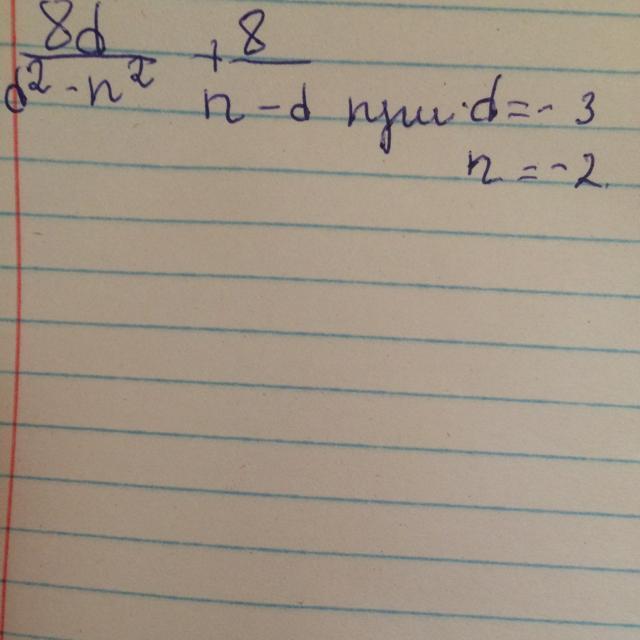 8d/d² - n² + 8/n - d при d = - 3
n = - 2